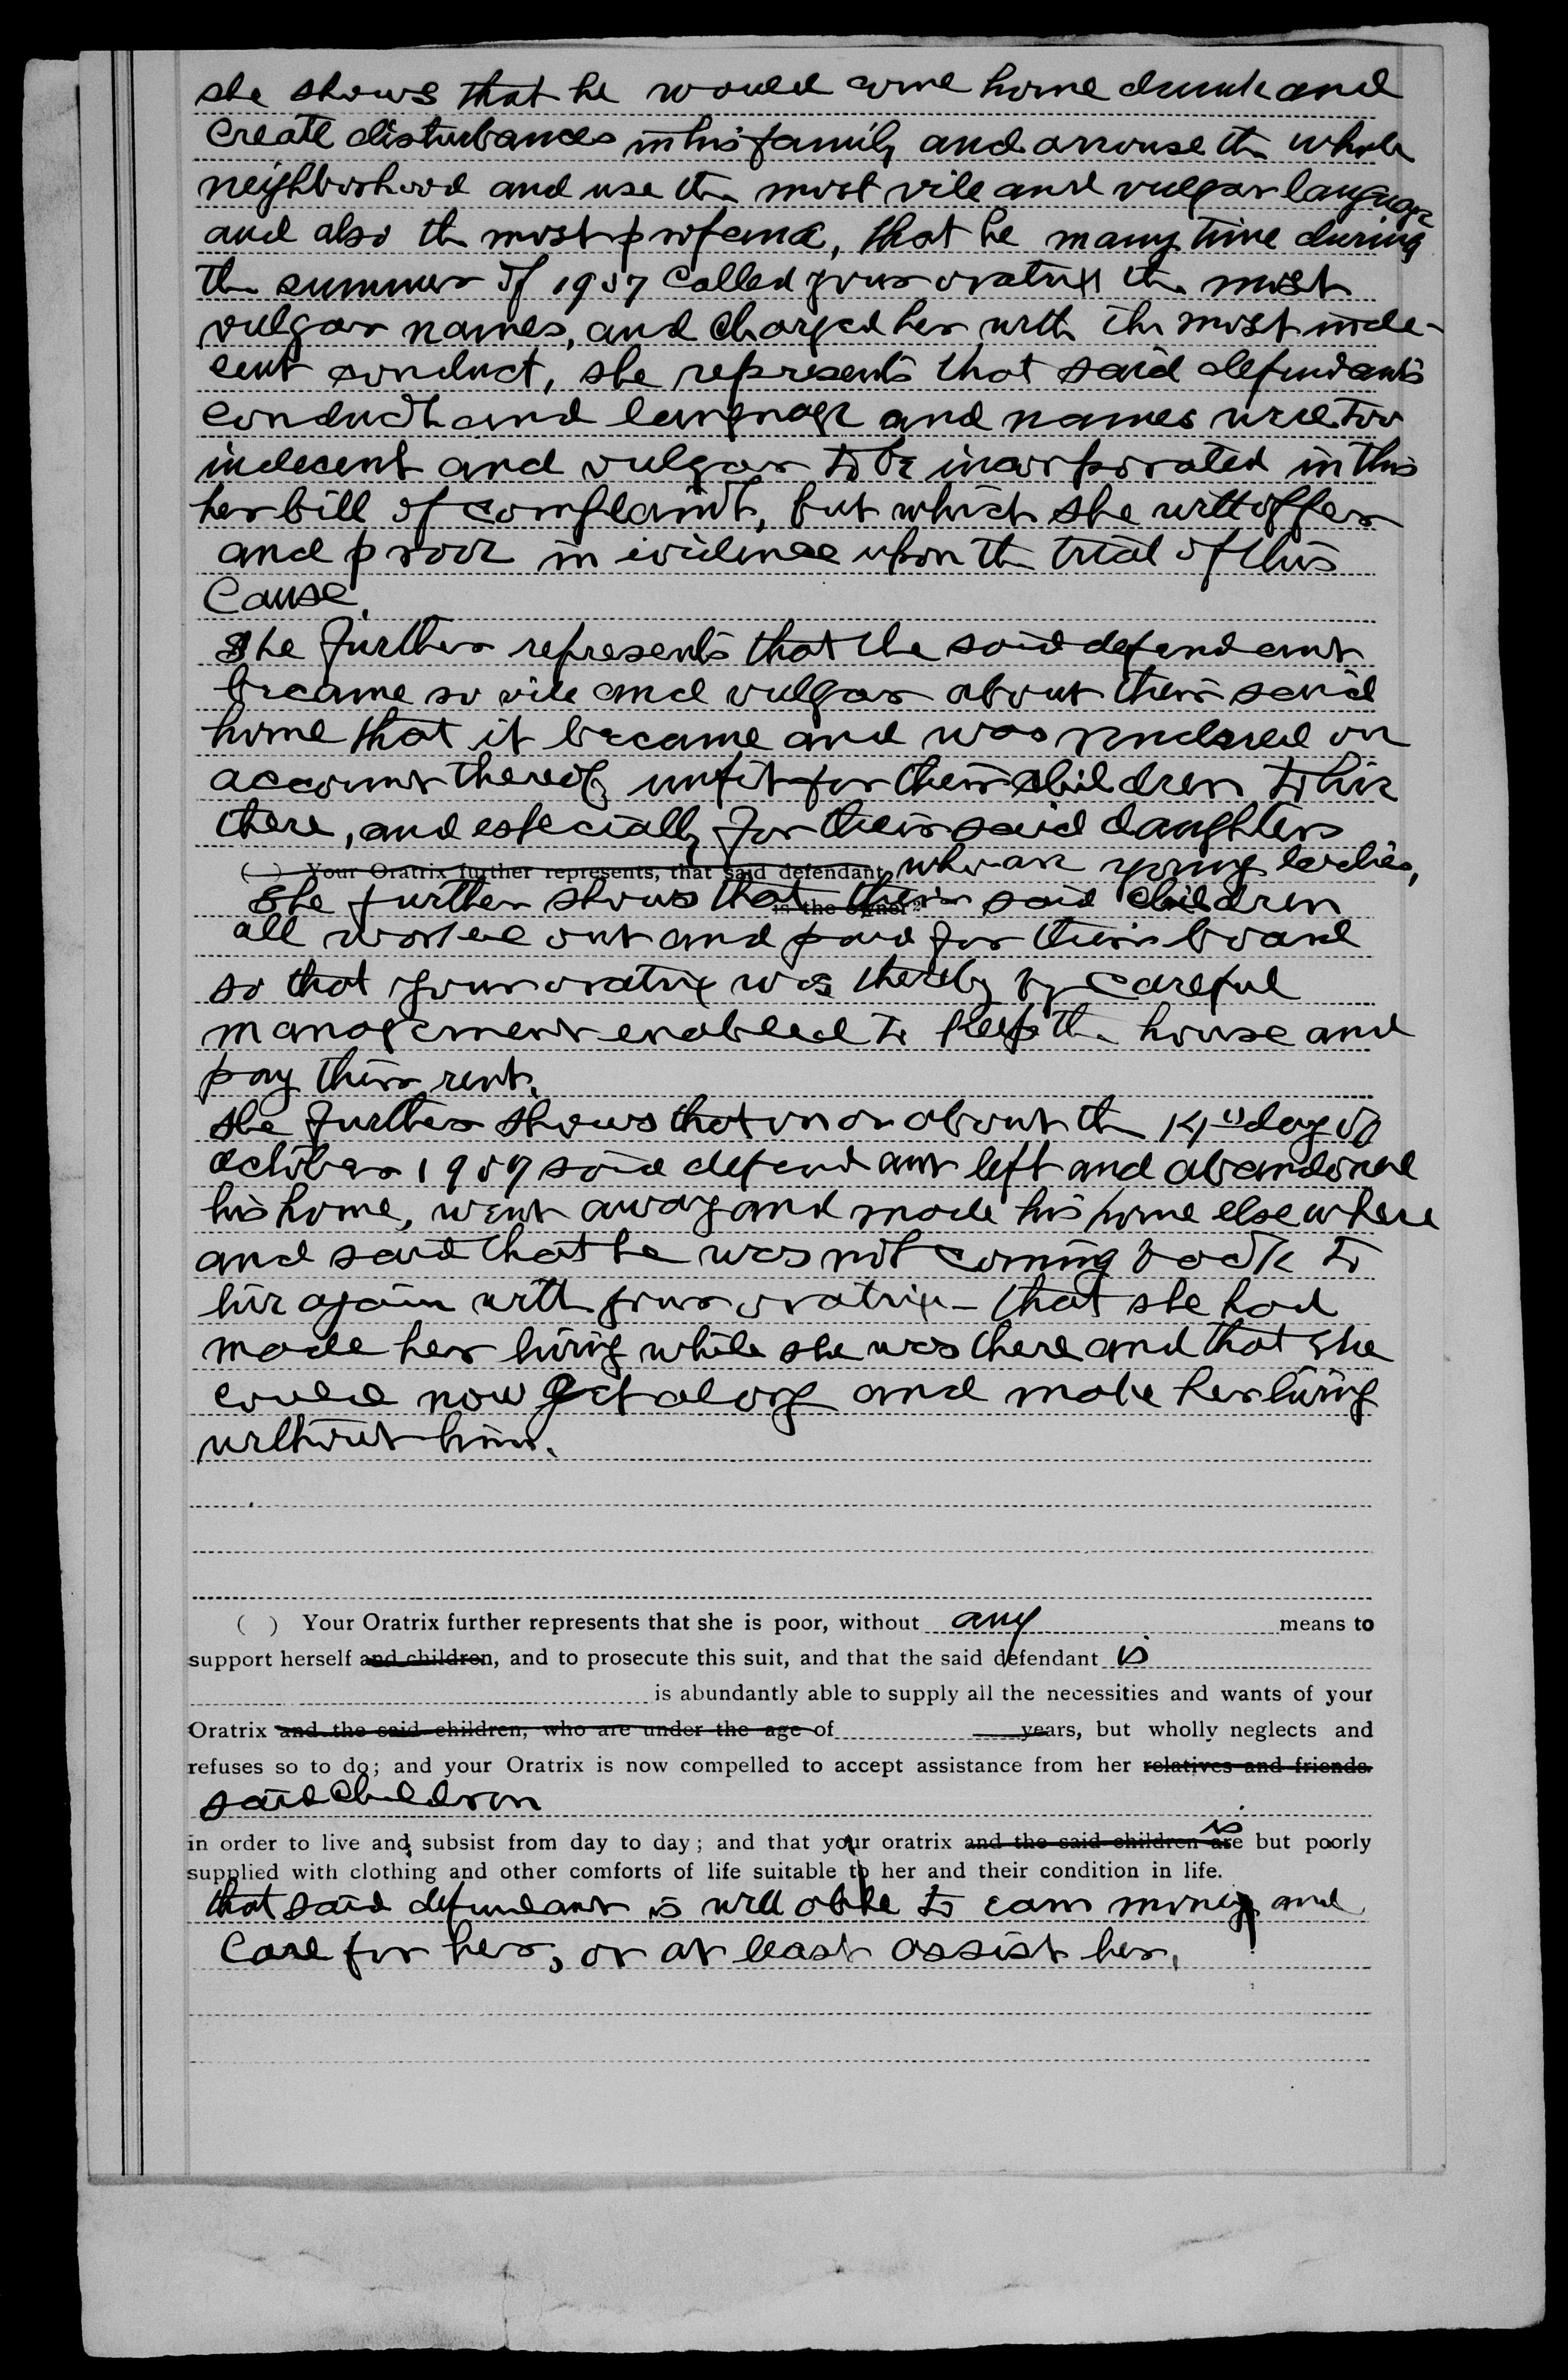 she shows that he would come home drunk and
create disturbances in his family and arrouse the whole
neighborhood and use the most vile and vulgar language
and also the most profane, that he many time during
the summer of 1907 called your oratrix the most
vulgar names, and charged her with the most inde-
cent conduct, she represents that said defendants
conduct and language and names were too
indecent and vulgar to be incorporated in this
her bill of complaint, but which she will offer
and prove in evidence upon the trial of this
Cause.
She further represents that the said defendant
became so vile and vulgar about their said
home that it became and was rendered on
account thereof, unfit for their children to live
there, and especially for their said daughters
( ) Your Oratrix further represents, that said defendant who are young ladies,
She further shows that their said children
is the owner
all worked out and paid for their board
so that your oratrix was thereby by careful
management enabled to keep the house and
pay their rent.
She further shows that on or about the day of
October 1907 said defendant left and abandoned
his home, went away and made his home elsewhere
and said that he was not coming back to
live again with your oratrix - that she had
made her living while she was there and that she
could now get along and make her living
without him.
( ) Your Oratrix further represents that she is poor, without any means to
support herself and children, and to prosecute this suit, and that the said defendant is
is abundantly able to supply all the necessities and wants of your
Oratrix and the said children, who are under the age of years, but wholly neglects and
refuses so to do; and your Oratrix is now compelled to accept assistance from her relatives and friends.
said children
is
in order to live and subsist from day to day; and that your oratrix and the said children are but poorly
supplied with clothing and other comforts of life suitable to her and their condition in life.
that said defendant is well able to earn money and
care for her, or at least assist her.